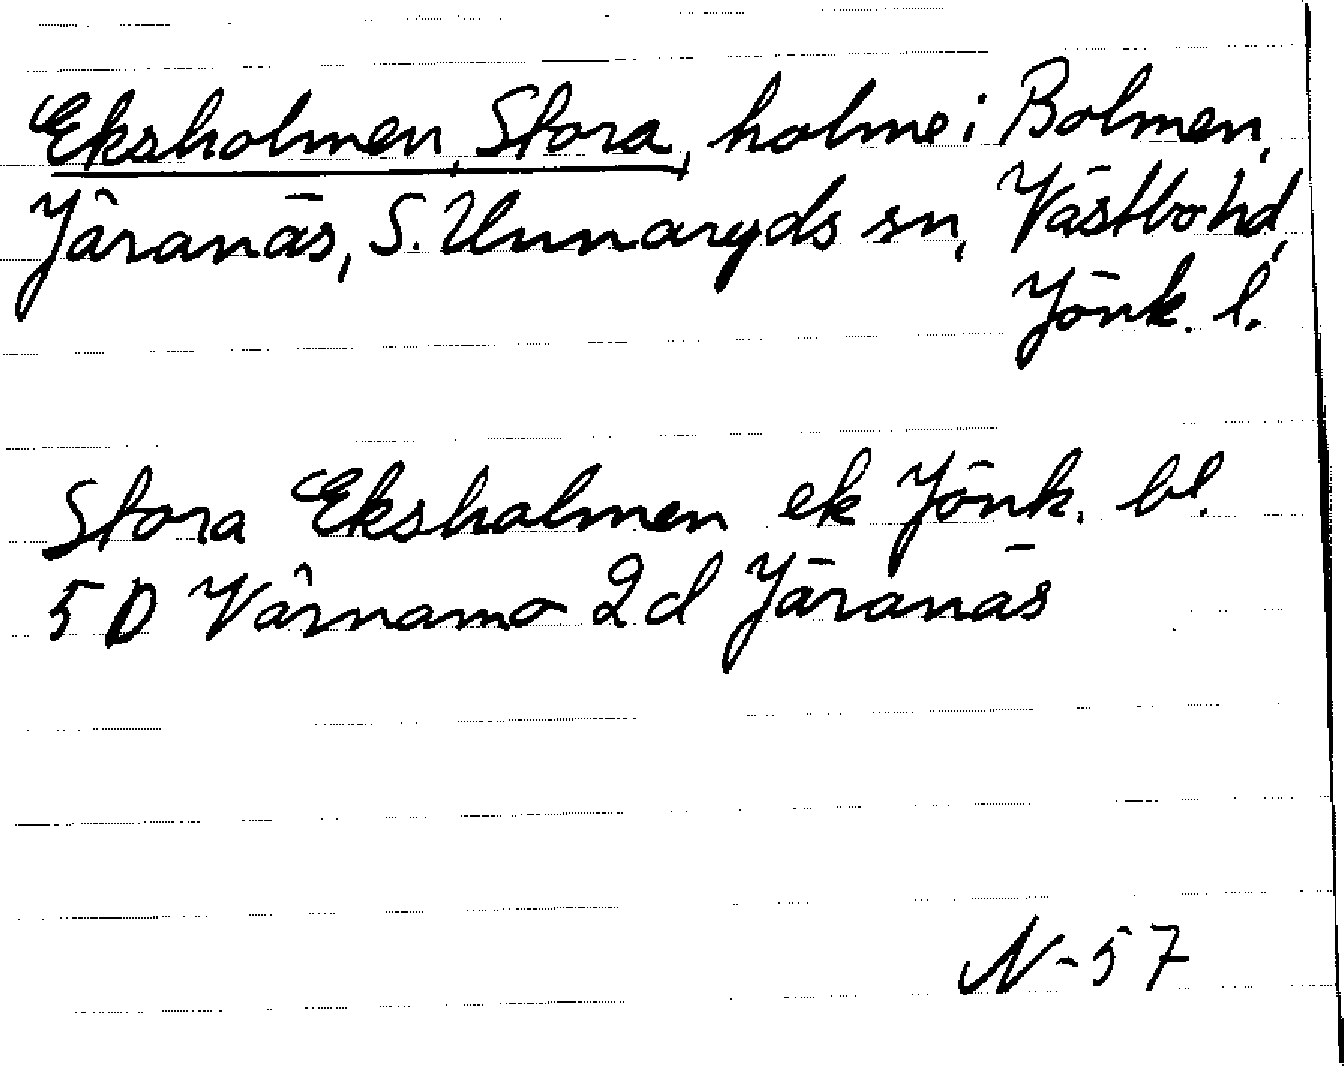 Eksholmen, Stora, holme i Bolmen,
Järanäs, S. Unnaryds sn, Västbo hd,
Jönk. l.
Stora Eksholmen ek Jönk. bl.
5 D Värnamo 2d Järanäs
N-57